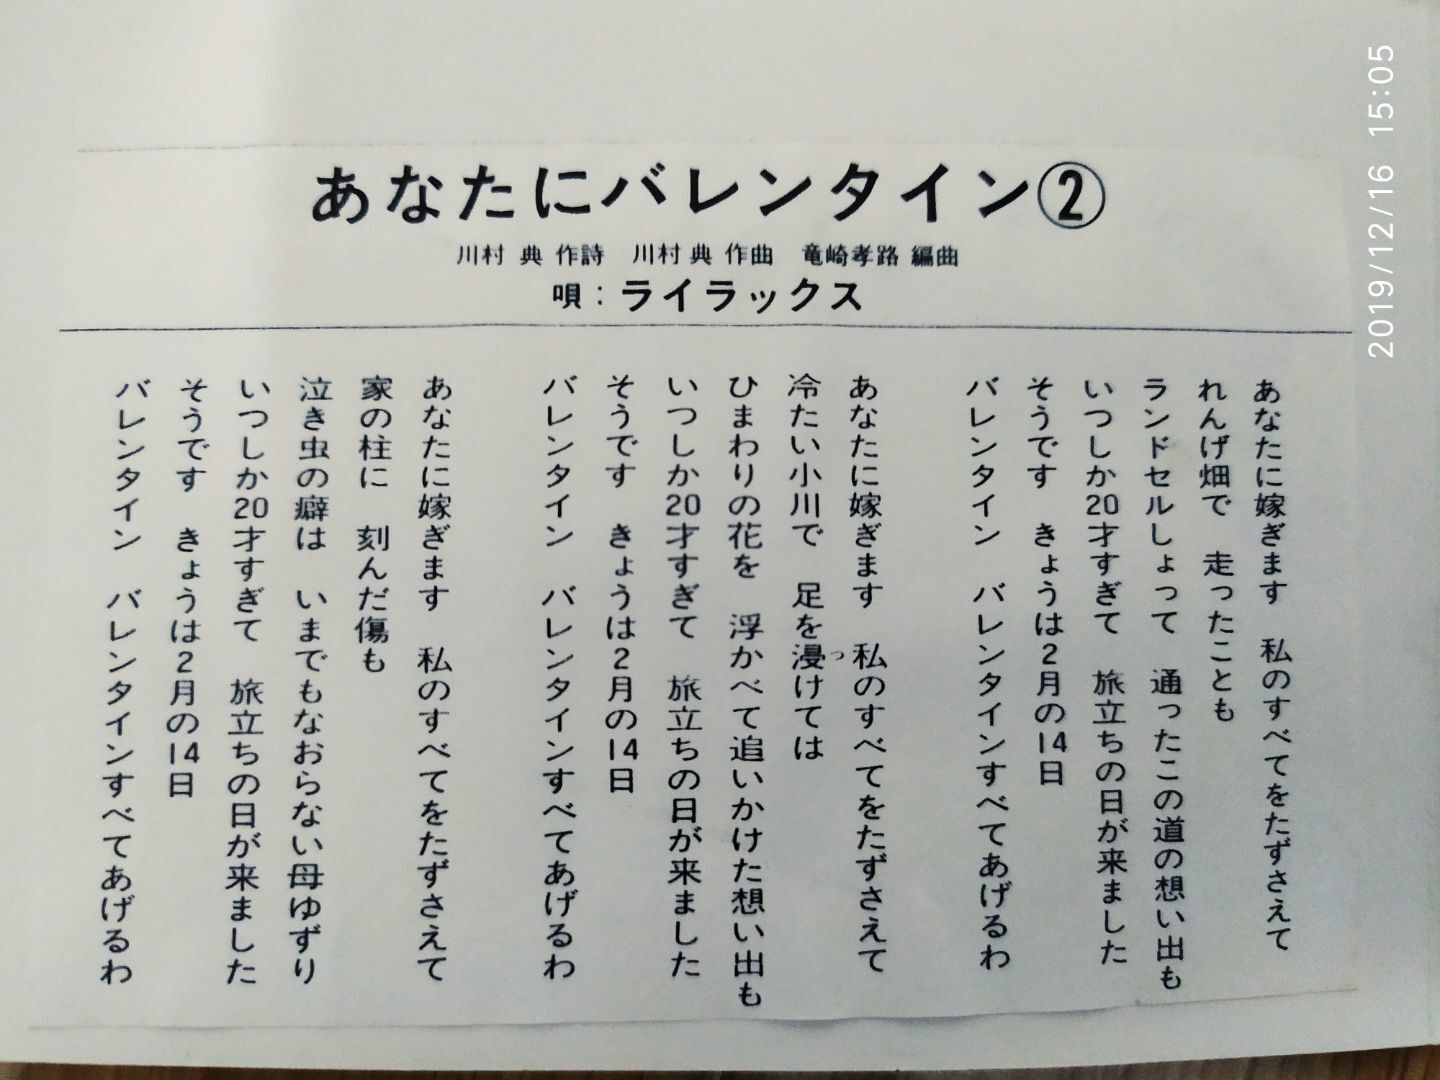 あなたにバレンタイン②
川村 典 作詩　川村 典 作曲　竜崎孝路 編曲
唄：ライラックス
あなたに嫁ぎます　私のすべてをたずさえて
れんげ畑で　走ったことも
ランドセルしょって　通ったこの道の想い出も
いつしか20才すぎて　旅立ちの日が来ました
そうです　きょうは2月の14日
バレンタイン　バレンタインすべてあげるわ
あなたに嫁ぎます　私のすべてをたずさえて
冷たい小川で　足を浸っけては
ひまわりの花を　浮かべて追いかけた想い出も
いつしか20才すぎて　旅立ちの日が来ました
そうです　きょうは2月の14日
バレンタイン　バレンタインすべてあげるわ
あなたに嫁ぎます　私のすべてをたずさえて
家の柱に　刻んだ傷も
泣き虫の癖は　いまでもなおらない母ゆずり
いつしか20才すぎて　旅立ちの日が来ました
そうです　きょうは2月の14日
バレンタイン　バレンタインすべてあげるわ
2019/12/16 15:05